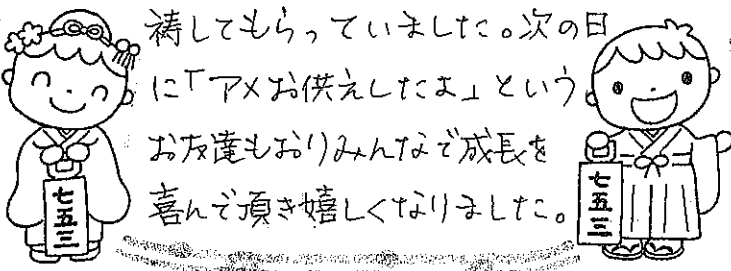 祷してもらっていました。次の日
に「アメお供えしたよ」という
お友達もおりみんなで成長を
喜んで頂き嬉しくなりました。
七五三
七五三